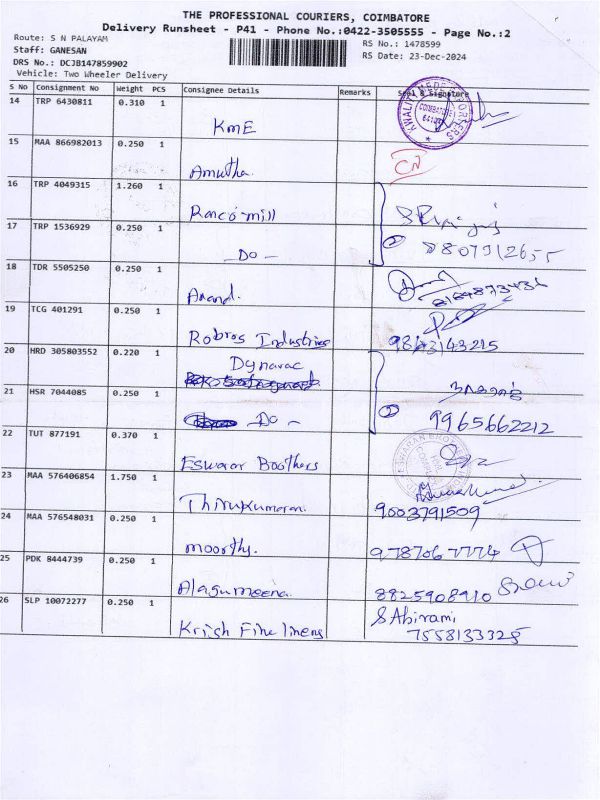 THE PROFESSIONAL COURIERS, COIMBATORE
Delivery Runsheet - P41 - Phone No.:0422-3505555 - Page No.:2
Route: S N PALAYAM
RS No.: 1478599
Staff: GANESAN
RS Date: 23-Dec-2024
DRS No.: DCJB147859902
Vehicle: Two Wheeler Delivery
S No Consignment No Weight PCS Consignee Details Remarks Seal & Signature
14 TRP 6430811 0.310 1
KmE
15 MAA 866982013 0.250 1
Amutha.
16 TRP 4049315 1.260 1
Ranco mill
17 TRP 1536929 0.250 1
- Do -
② 8807312655
18 TDR 5505250 0.250 1
Anand.
19 TCG 401291 0.250 1
Robros Industries 9843143215
20 HRD 305803552 0.220 1
Dynavac
21 HSR 7044085 0.250 1
- Do - ② 9965662212
22 TUT 877191 0.370 1
Eswarar Boothers
23 MAA 576406854 1.750 1
Thirukumaran. 9003791509
24 MAA 576548031 0.250 1
moorthy. 9787067774
25 PDK 8444739 0.250 1
Alagumeena. 8825908910
26 SLP 10072277 0.250 1
S Abirami
Krish Fine linens 7558133325